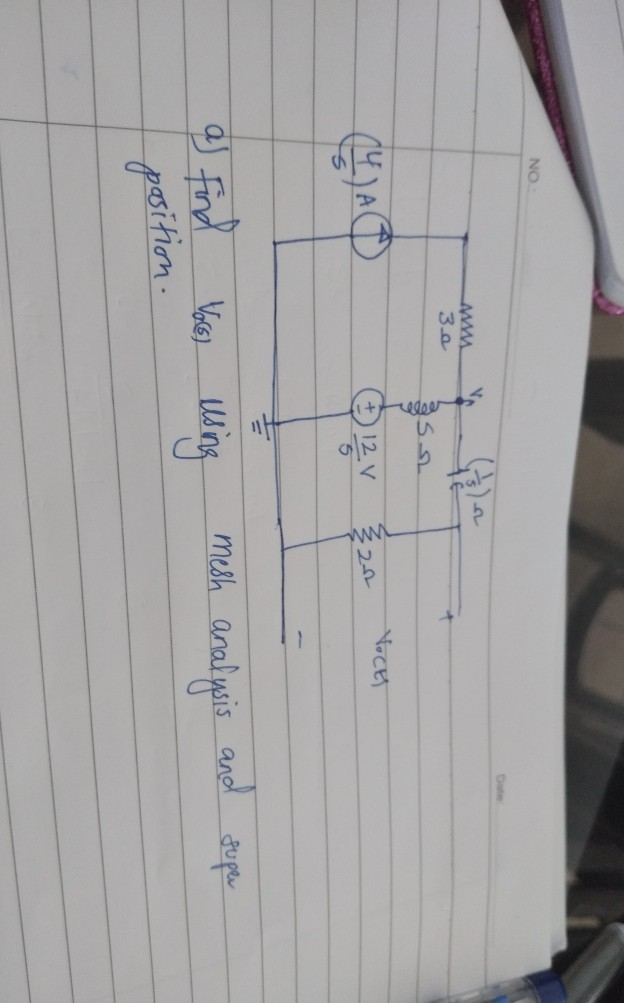 NO.
Date:
3Ω
VA
(1/s)Ω
+
(4/s)A
S Ω
±
12/s V
2Ω
Vo(t)
-
a) Find Vo(s) using mesh analysis and super
position.